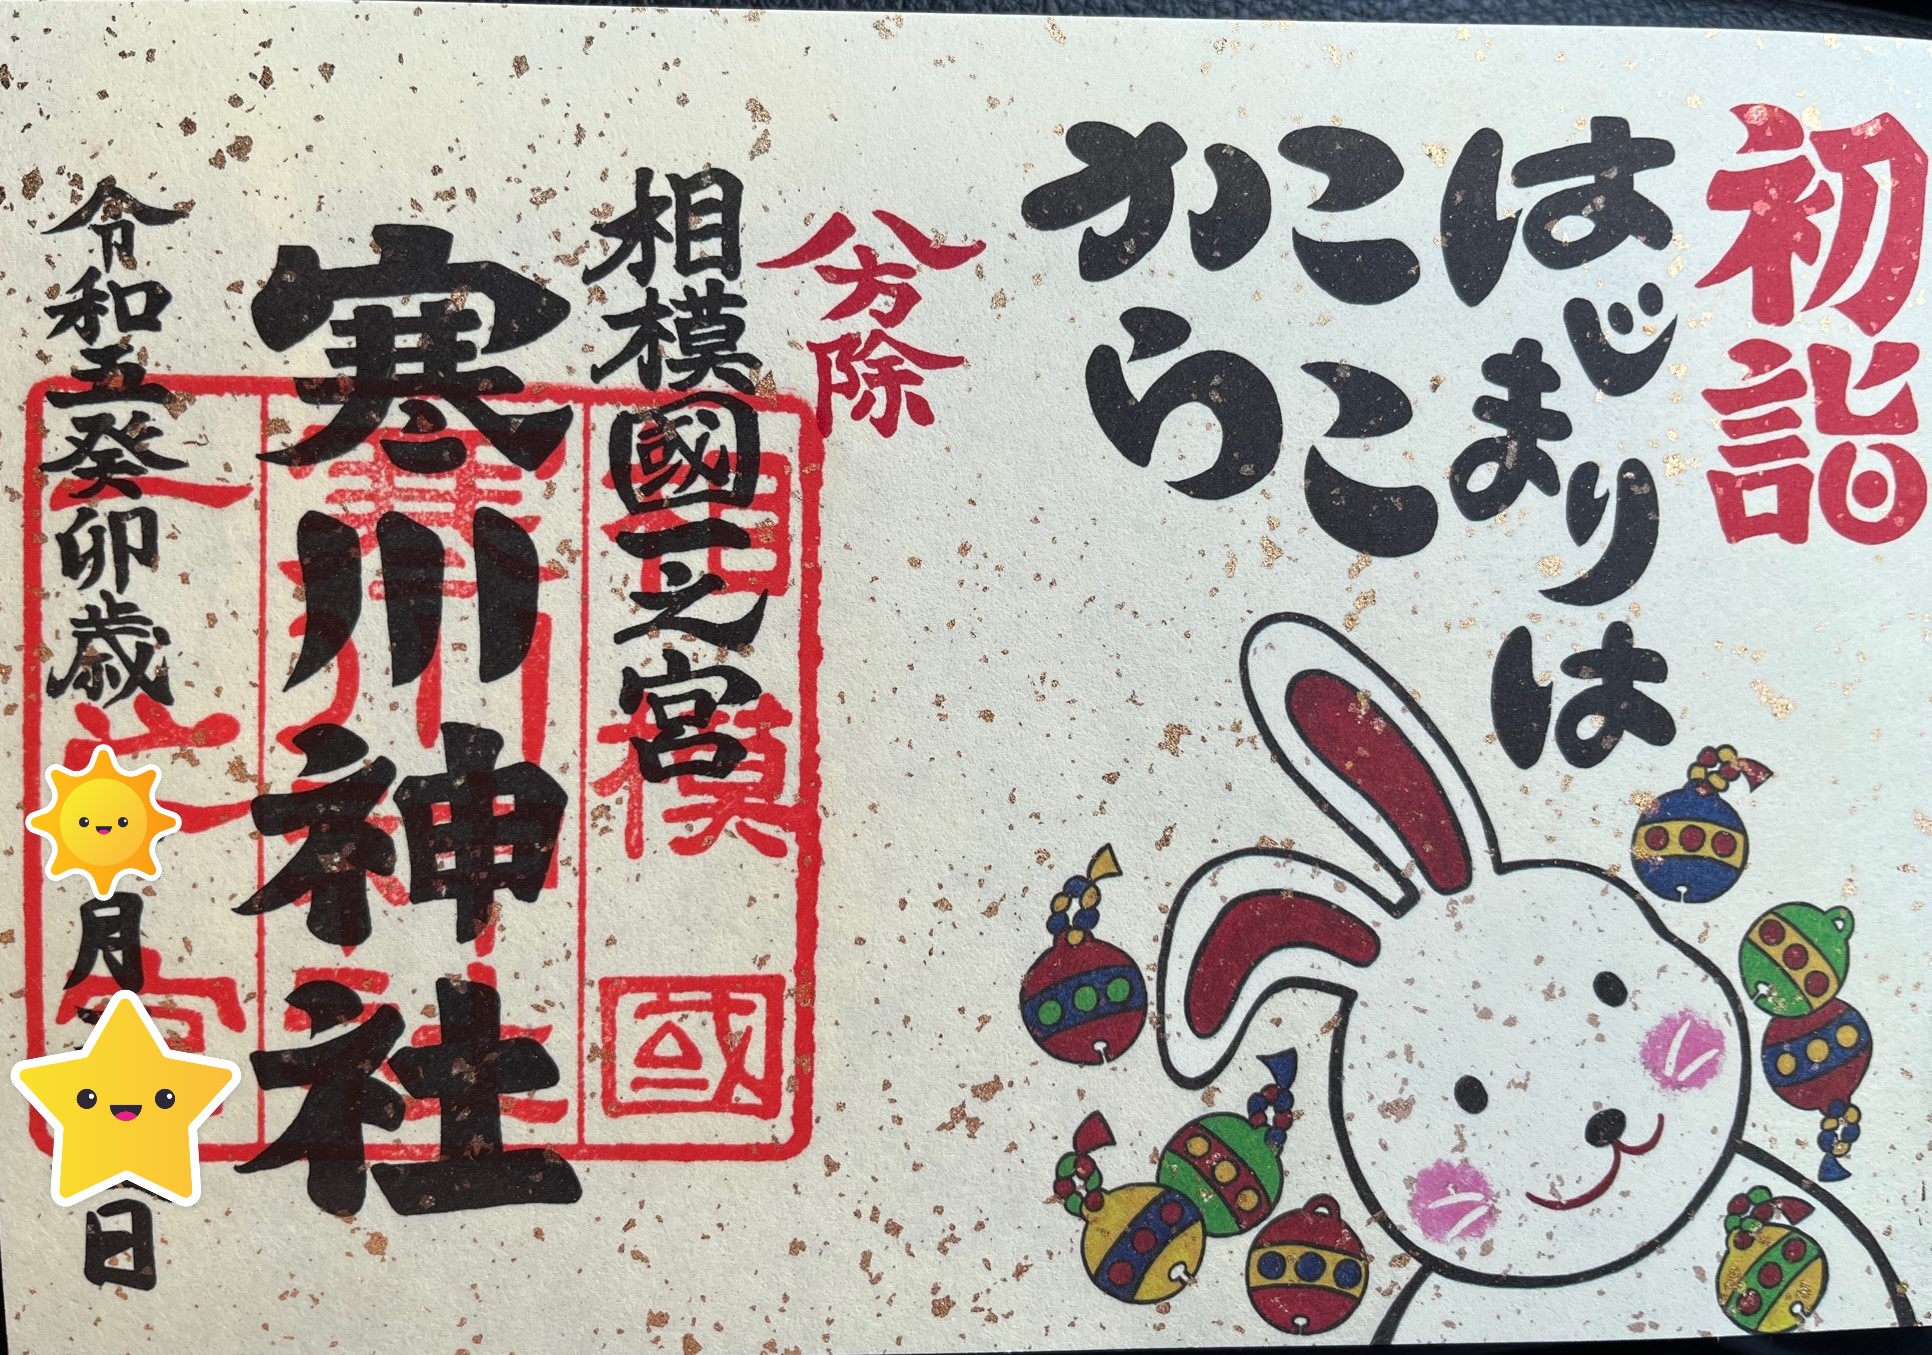 初詣
はじまりは
ここ
から
八方除
相模國一之宮
寒川神社
令和五癸卯歳 月 日
相模國
寒川神社
一之宮